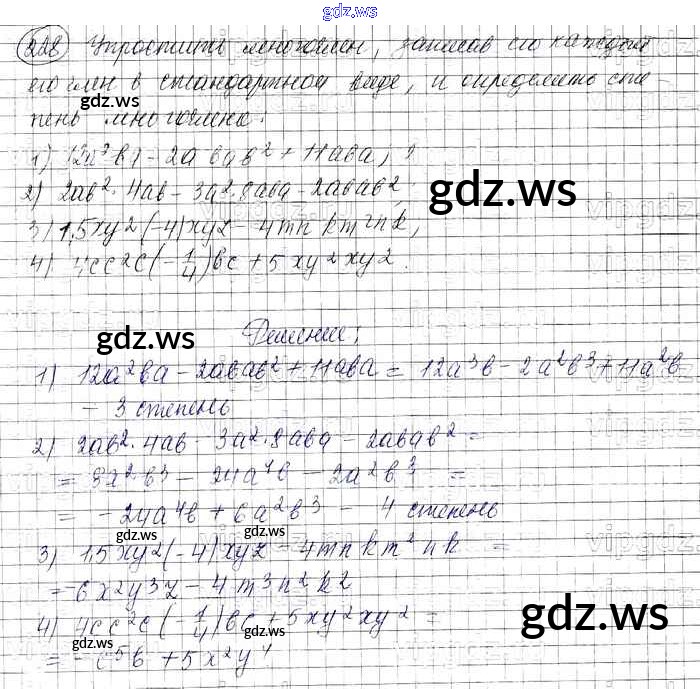 gdz.ws
228 Упростить многочлен, записав его каждый
его член в стандартном виде, и определить сте-
gdz.ws
пень многочлена:
1) 12a³b) - 2a bab² + 11aba,
gdz.ws
2) 2ab²·4ab - 3a²·8aba - 2abab²,
3) 1,5xy²(-4)xyz - 4mnkm²nk,
4) 4cc²c(-1/4)bc + 5xy²xy².
gdz.ws
Решение:
1) 12a²ba - 2abab² + 11aba = 12a³b - 2a²b³ + 11a²b
- 3 степень
gdz.ws
2) 2ab²·4ab - 3a²·8aba - 2abab² =
= 8a²b³ - 24a⁴b - 2a²b³ =
gdz.ws
= -24a⁴b + 6a²b³ - 4 степень
gdz.ws
3) 1,5xy²(-4)xyz - 4mnkm²nk =
= 6x²y³z - 4m³n²k²
gdz.ws
4) 4cc²c(-1/4)bc + 5xy²xy² =
gdz.ws
= -c⁵b + 5x²y⁴
gdz.ws